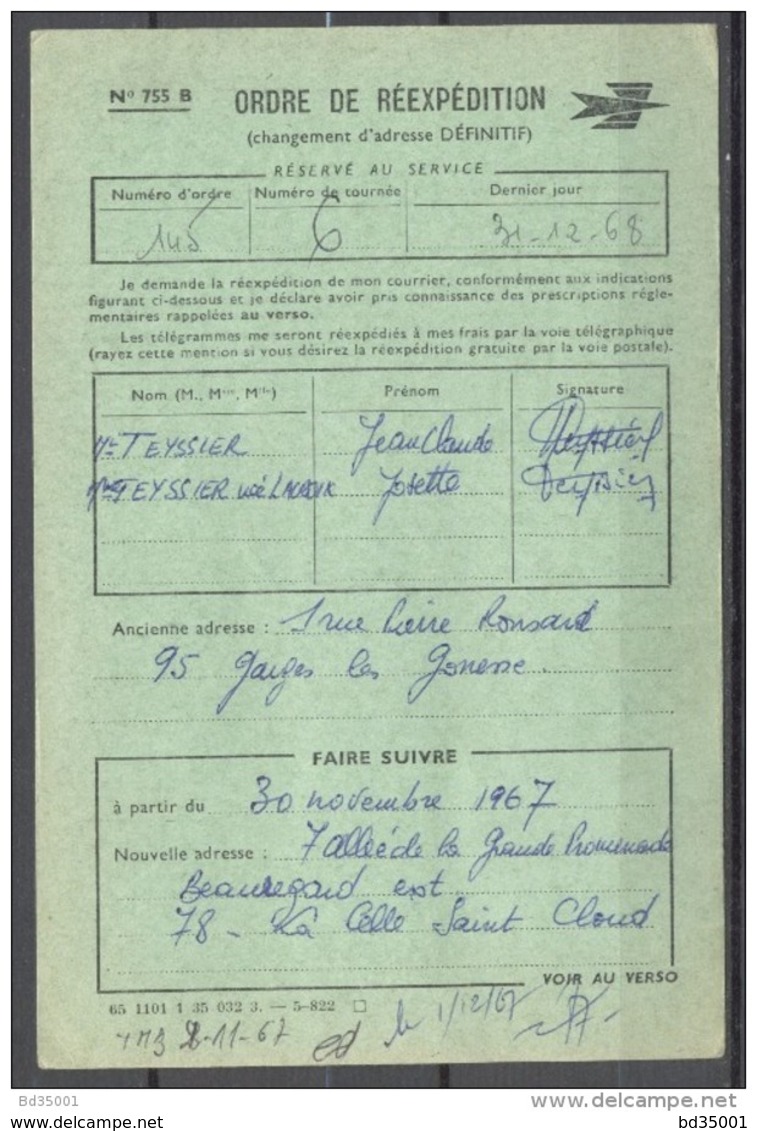 Nº 755 B
ORDRE DE RÉEXPÉDITION
(changement d'adresse DÉFINITIF)
RÉSERVÉ AU SERVICE
Numéro d'ordre Numéro de tournée Dernier jour
145 6 31-12-68
Je demande la réexpédition de mon courrier, conformément aux indications
figurant ci-dessous et je déclare avoir pris connaissance des prescriptions régle-
mentaires rappelées au verso.
Les télégrammes me seront réexpédiés à mes frais par la voie télégraphique
(rayez cette mention si vous désirez la réexpédition gratuite par la voie postale).
Nom (M., Mme, Mlle) Prénom Signature
Mr TEYSSIER Jean Claude Teyssier
Mme TEYSSIER née LACROIX Josette Teyssier
Ancienne adresse : 1 rue Pierre Ronsard
95 Garges les Gonesse
FAIRE SUIVRE
à partir du 30 novembre 1967
Nouvelle adresse : 7 allée de la Grande Promenade
Beauregard est
78 - La Celle Saint Cloud
VOIR AU VERSO
65 1101 1 35 032 3. — 5-822
le 1/12/67
-11-67
Bd35001 delcampe.net
bd35001 bd35001